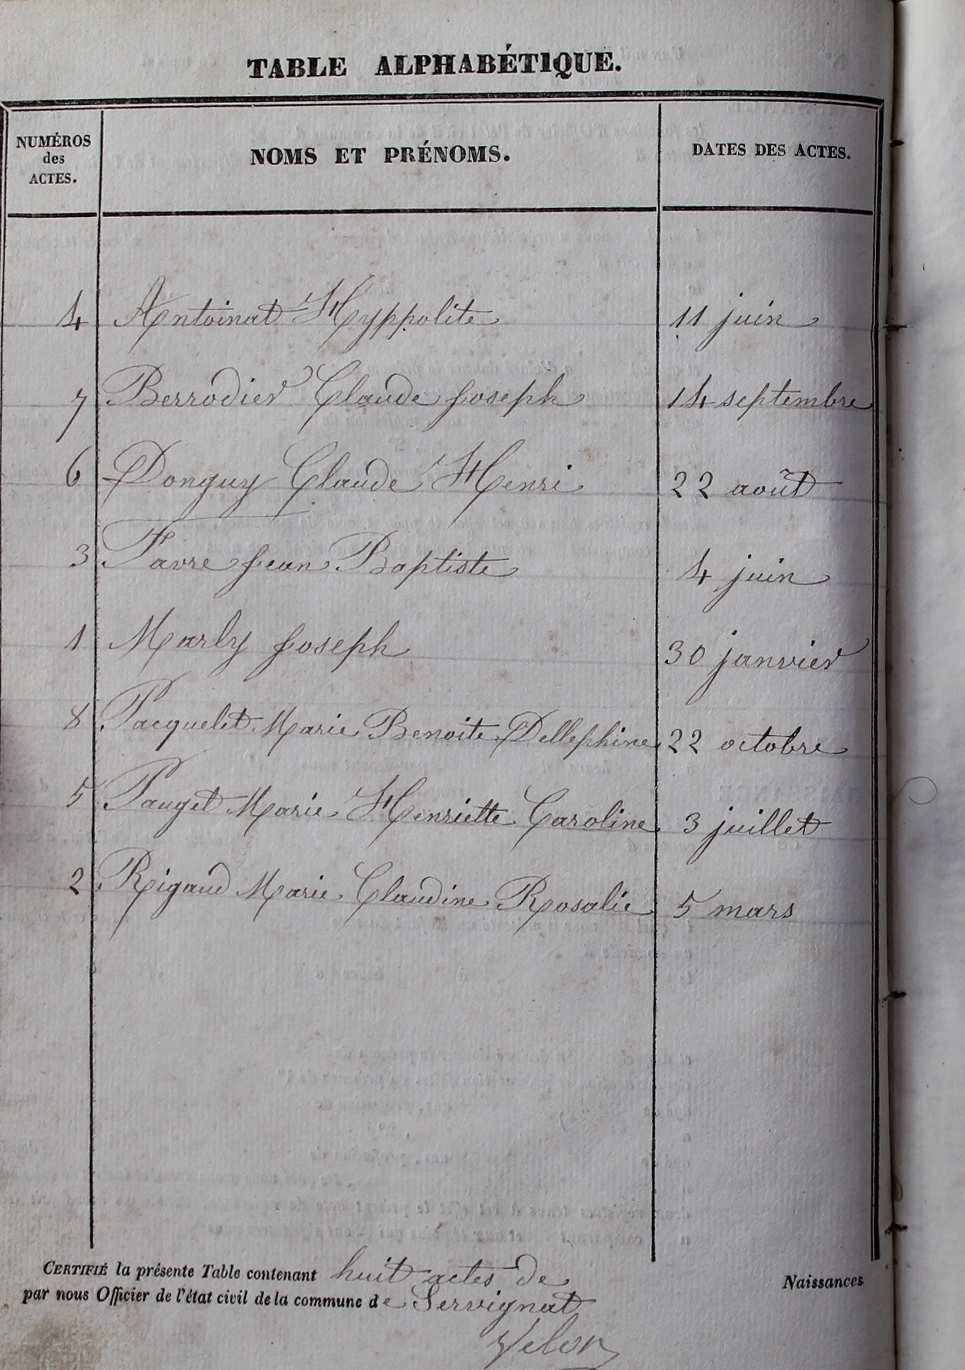 TABLE ALPHABÉTIQUE.
NUMÉROS
des
ACTES.
NOMS ET PRÉNOMS.
DATES DES ACTES.
4 Antoinat Hyppolite 11 juin
7 Berrodier Claude Joseph 14 septembre
6 Donguy Claude Henri 22 août
3 Favre Jean Baptiste 4 juin
1 Marly Joseph 30 janvier
8 Pacquelet Marie Benoite Dellephine 22 octobre
5 Pauget Marie Henriette Caroline 3 juillet
2 Rigaud Marie Claudine Rosalie 5 mars
CERTIFIÉ la présente Table contenant huit actes de Naissances
par nous Officier de l'état civil de la commune de Servignat